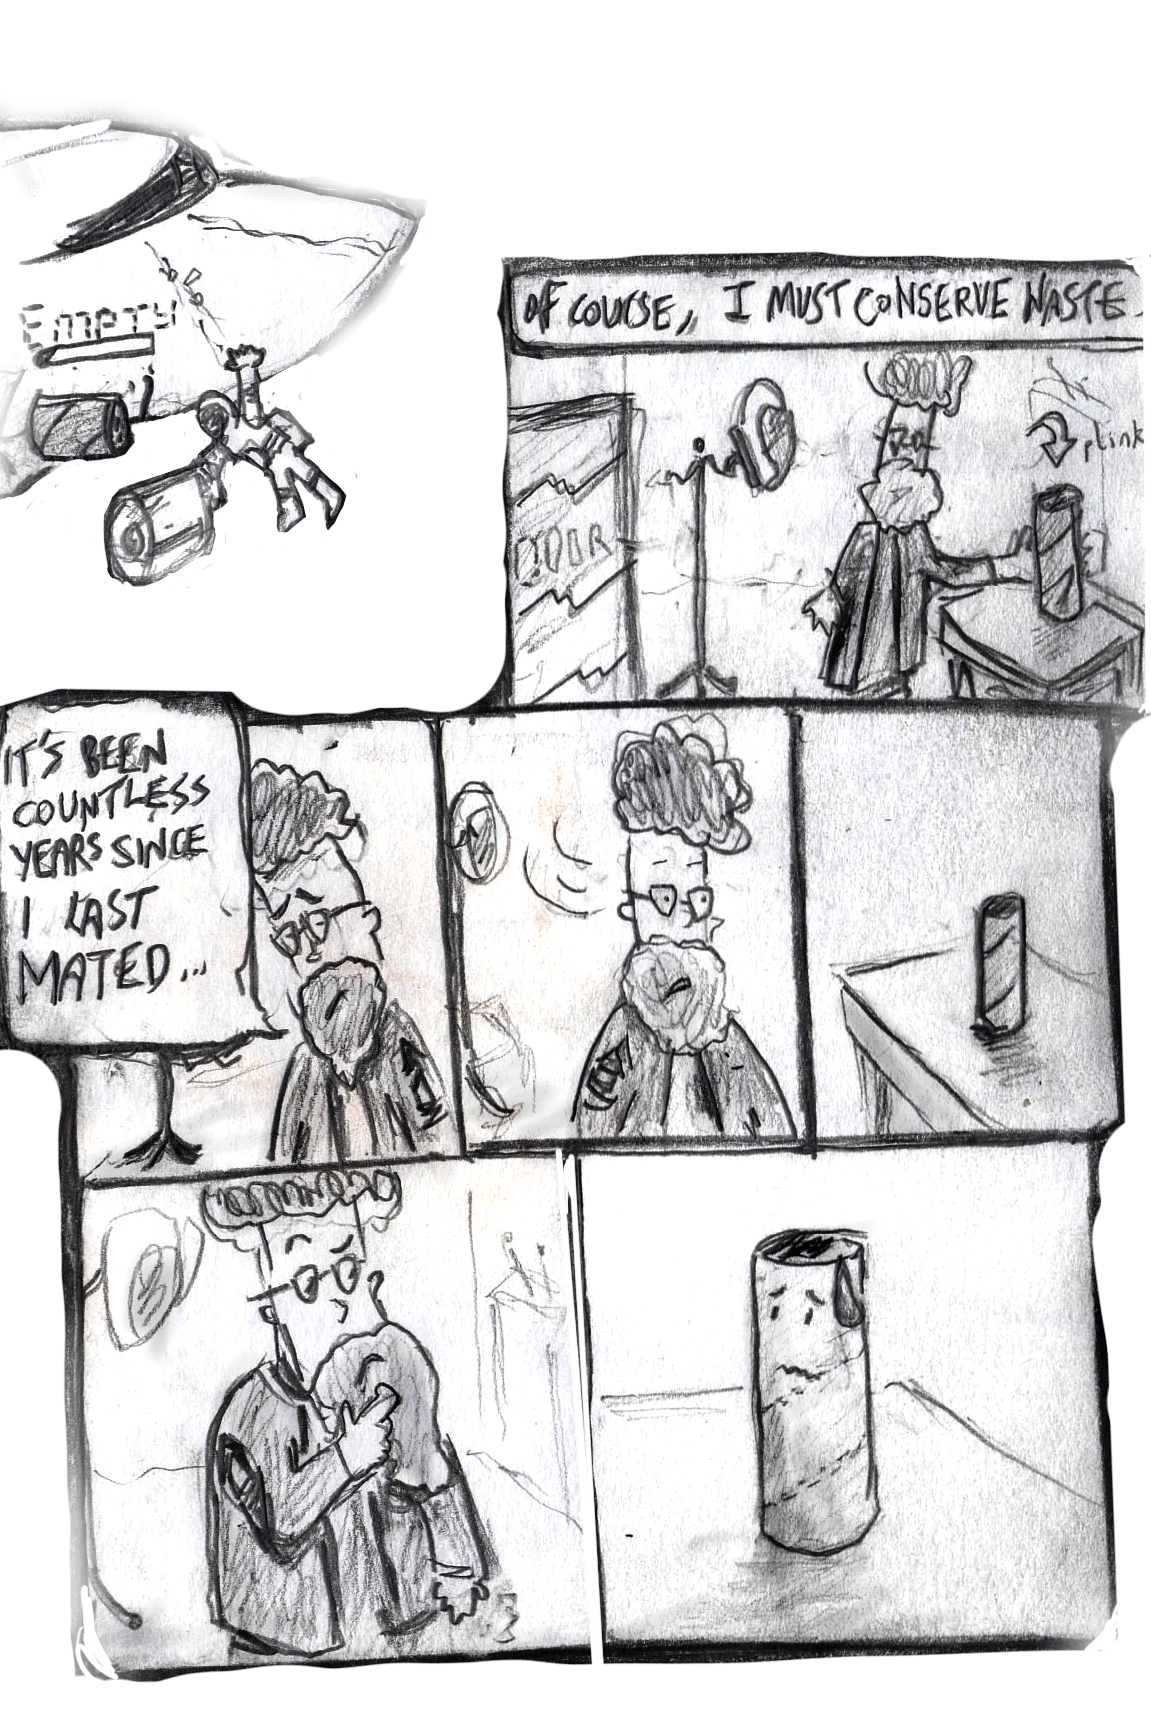 EMPTY
OF COURSE, I MUST CONSERVE WASTE.
plink
DOOR
IT'S BEEN
COUNTLESS
YEARS SINCE
I LAST
MATED...